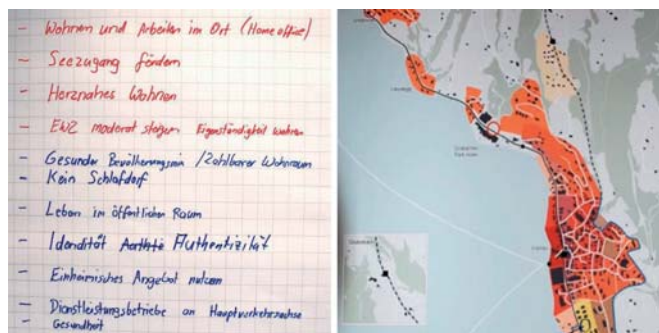 - Wohnen und Arbeiten im Ort (Homeoffice)
- Seezugang fördern
- Horznahes Wohnen
- EWZ moderat steigen Eigenständigkeit wahren
- Gesunder Bevölkerungsmix / Zahlbarer Wohnraum
- Kein Schlafdorf
- Leben im öffentlichen Raum
- Idendität Authentizität
- Einheimisches Angebot nutzen
- Dienstleistungsbetriebe an Hauptverkehrsachse
- Gesundheit